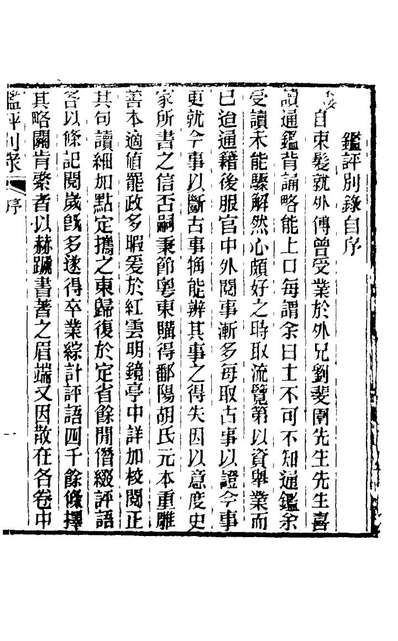 鑑評別錄自序
自束髮就外傅曾受業於外兄劉斐園先生先生喜
讀通鑑背誦略能上口每謂余曰士不可不知通鑑余
受讀未能驟解然心頗好之時取流覽第以資舉業而
已迨通籍後服官中外閱事漸多每取古事以證今事
更就今事以斷古事稍能辨其事之得失因以意度史
家所書之信否嗣秉節粵東購得鄱陽胡氏元本重雕
善本適値罷政多暇爰於紅雲明鏡亭中詳加校閱正
其句讀細加點定攜之東歸復於定省餘閒僭綴評語
各以條記閱歲旣多遂得卒業綜計評語四千餘條擇
其略關肯綮者以赫蹏書著之眉端又因散在各卷中
鑑評別錄 序 一